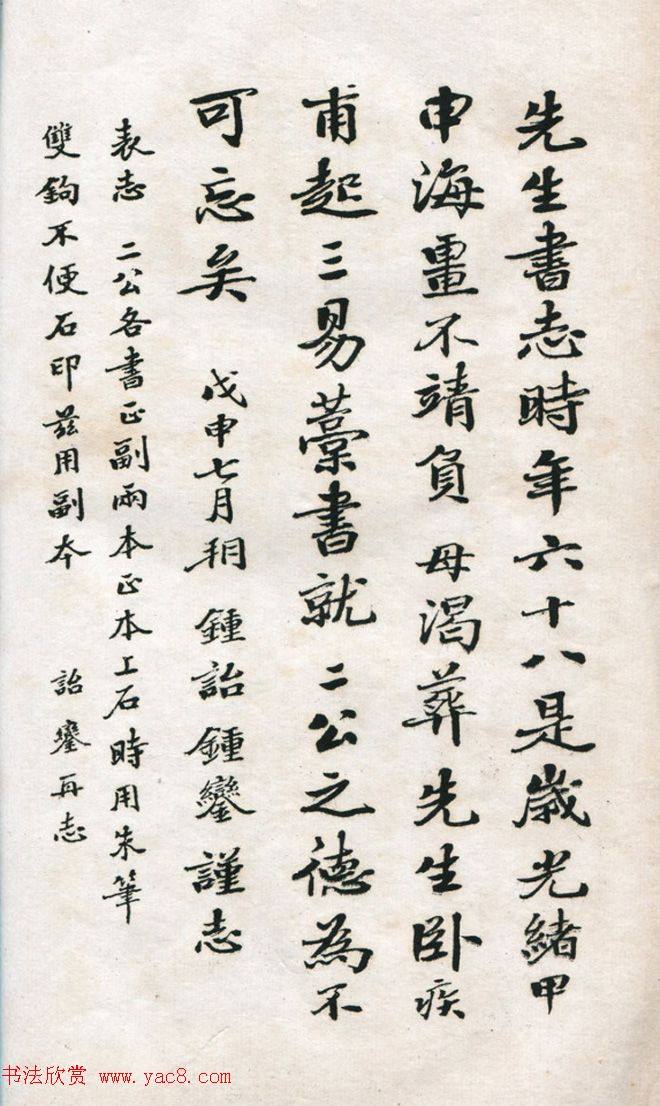 先生書志時年六十八是歲光緒甲
申海畺不靖負 母渴葬先生卧疾
甫起三易藁書就 二公之德為不
可忘矣 戊申七月朔 鍾詒鍾鑾謹志
表志 二公各書正副兩本正本上石時用朱筆
雙鉤不便石印茲用副本 詒鑾再志
书法欣赏 www.yac8.com